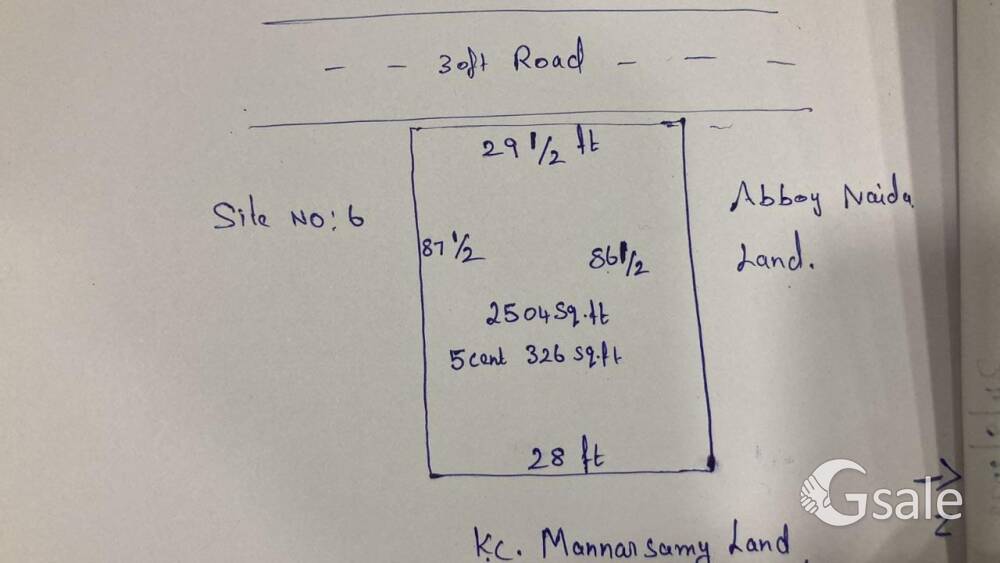 - - 30ft Road - - -
29 1/2 ft
Site No: 6
Abboy Naidu
Land.
87 1/2
86 1/2
2504 Sq.ft
5 cent 326 sq.ft
28 ft
Gsale
K.C. Mannarsamy Land
N